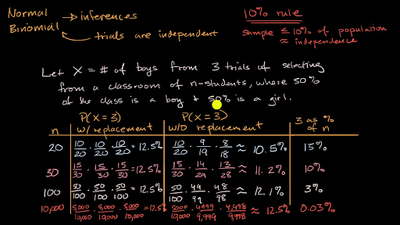 Normal → inferences
Binomial
trials are independent
10% rule
sample ≤ 10% of population
≈ independence
Let X = # of boys from 3 trials of selecting
from a classroom of n-students, where 50%
of the class is a boy & 50% is a girl.
P(X=3) P(X=3) 3 as %
n w/ replacement w/o replacement of n
20 10/20 · 10/20 · 10/20 = 12.5% 10/20 · 9/19 · 8/18 ≈ 10.5% 15%
30 15/30 · 15/30 · 15/30 = 12.5% 15/30 · 14/29 · 13/28 ≈ 11.2% 10%
100 50/100 · 50/100 · 50/100 = 12.5% 50/100 · 49/99 · 48/98 ≈ 12.1% 3%
10,000 5,000/10,000 · 5,000/10,000 · 5,000/10,000 = 12.5% 5000/10,000 · 4,999/9,999 · 4,998/9998 ≈ 12.5% 0.03%